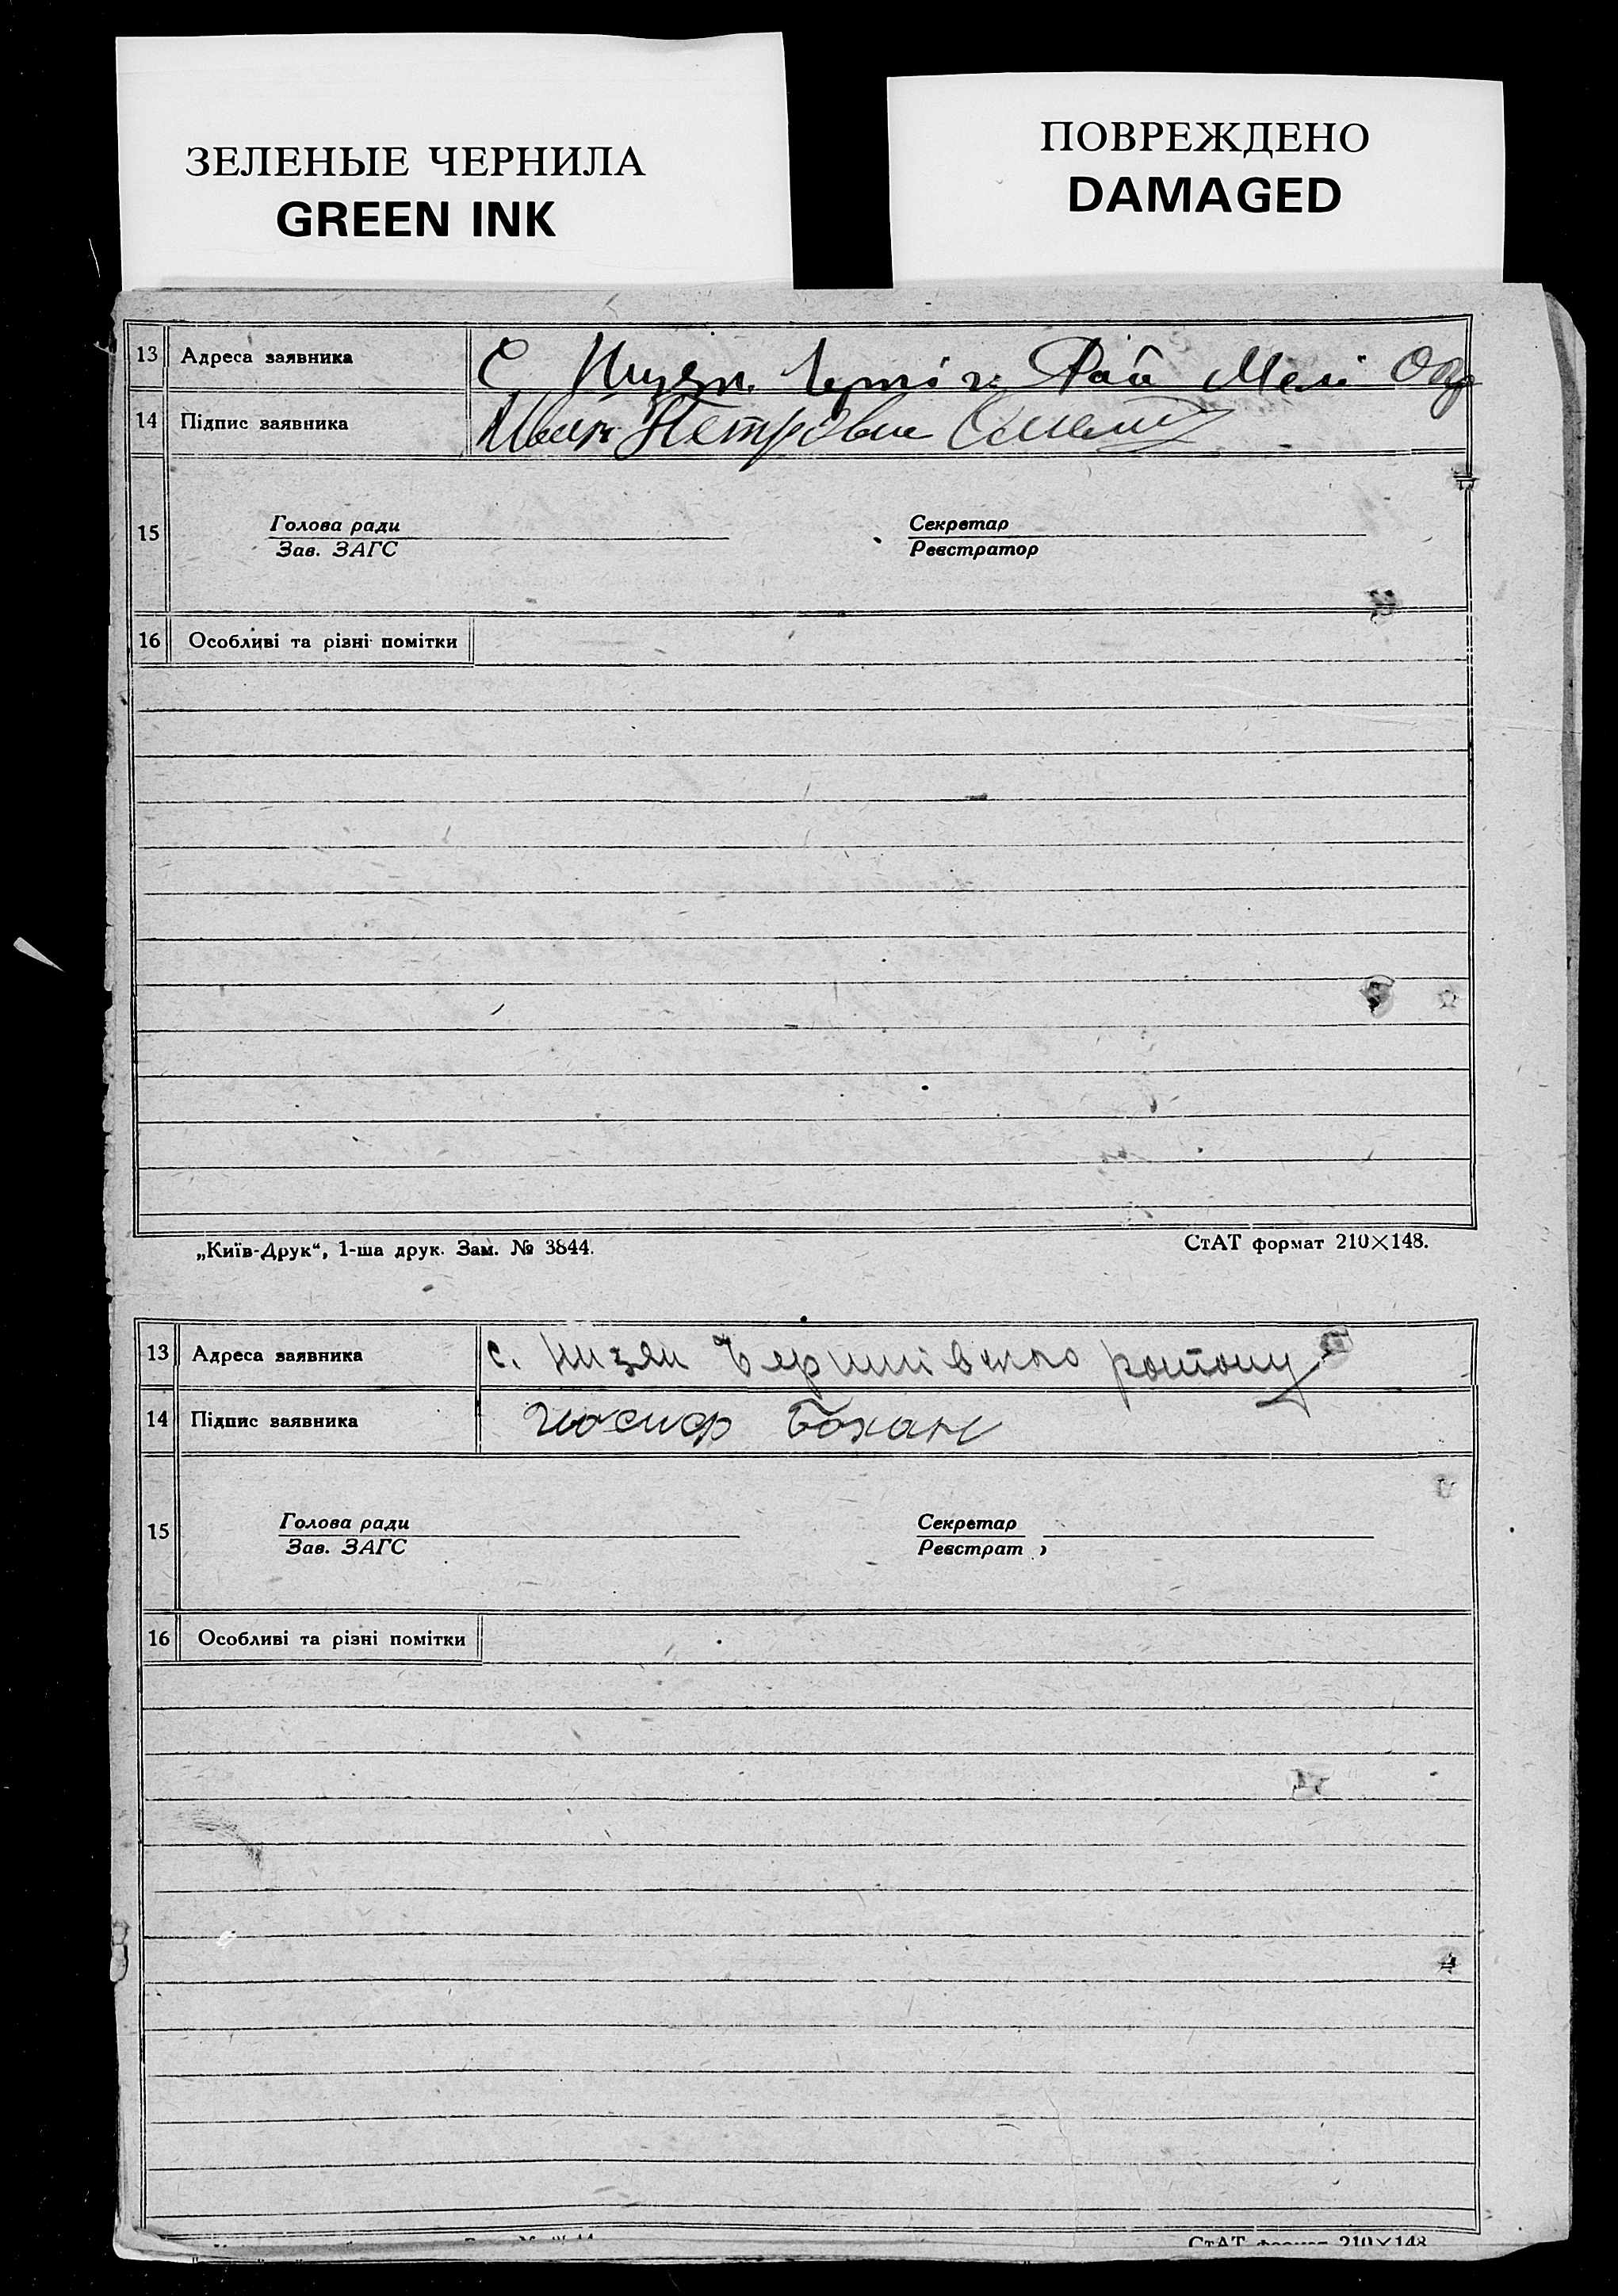 ЗЕЛЕНЫЕ ЧЕРНИЛА
GREEN INK
ПОВРЕЖДЕНО
DAMAGED
13 Адреса заявника С
14 Підпис заявника Петрович
15 Голова ради Секретар
Зав. ЗАГС Реєстратор
16 Особливі та різні помітки
„Київ-Друк“, 1-ша друк. Зам. № 3844. СтАТ формат 210×148.
13 Адреса заявника с. Низян
14 Підпис заявника Иосиф Бохан
15 Голова ради Секретар
Зав. ЗАГС Реєстрат
16 Особливі та різні помітки
СтАТ формат 210×148